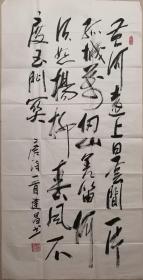 黄河遠上白雲間一片
孤城萬仞山羌笛何
須怨楊柳春風不
度玉門関
唐詩一首建昌书